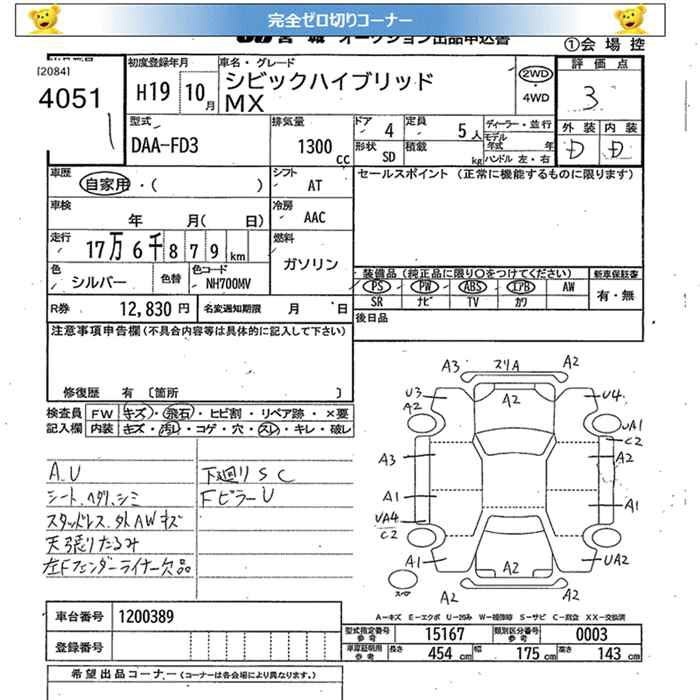 完全ゼロ切りコーナー
JU 宮城 オークション出品申込書
①会場控
[2084]
4051
初度登録年月
H19 10月
車名・グレード
シビックハイブリッド
MX
2WD
・4WD
評価点
3
外装 内装
D D
型式
DAA-FD3
排気量
1300 cc
ドア 4
定員 5人
形状 SD
積載 kg
ディーラー・並行
モデル年式 年
ハンドル 左・右
車歴
自家用・( )
シフト
AT
セールスポイント (正常に機能するものに限ります)
車検
年 月( 日)
冷房
AAC
走行
17万6千879km
燃料
ガソリン
色
シルバー
色替
色コード
NH700MV
装備品 (純正品に限り〇をつけてください)
新車保証書
PS PW ABS エアB AW
SR ナビ TV カワ
有・無
R券 12,830 円
名変通知期限 月 日
後日品
注意事項申告欄(不具合内容等は具体的に記入して下さい)
修復歴 有 〔箇所 〕
検査員 記入欄
FW キズ・飛石・ヒビ割・リペア跡・×要
内装 キズ・汚レ・コゲ・穴・スレ・キレ・破レ
A.U 下廻りSC
シート、ヘタリ、シミ Fピラー U
スタッドレス、外AWキズ
天張りたるみ
左Fフェンダーライナー欠品
A3 スリA A2
U3 A2 A2 U4
UA1
C2
A3 A2
A1 A1
UA4
C2
A1 A2 UA2
A2 A2
スペア
A―キズ E―エクボ U―凹み W―補修跡 S―サビ C―腐食 XX―交換済
車台番号 1200389
登録番号
型式指定番号 参考 15167
類別区分番号 参考 0003
車庫証明用 参考 長さ 454 cm 幅 175 cm 高さ 143 cm
希望出品コーナー (コーナーは各会場により異なります。)